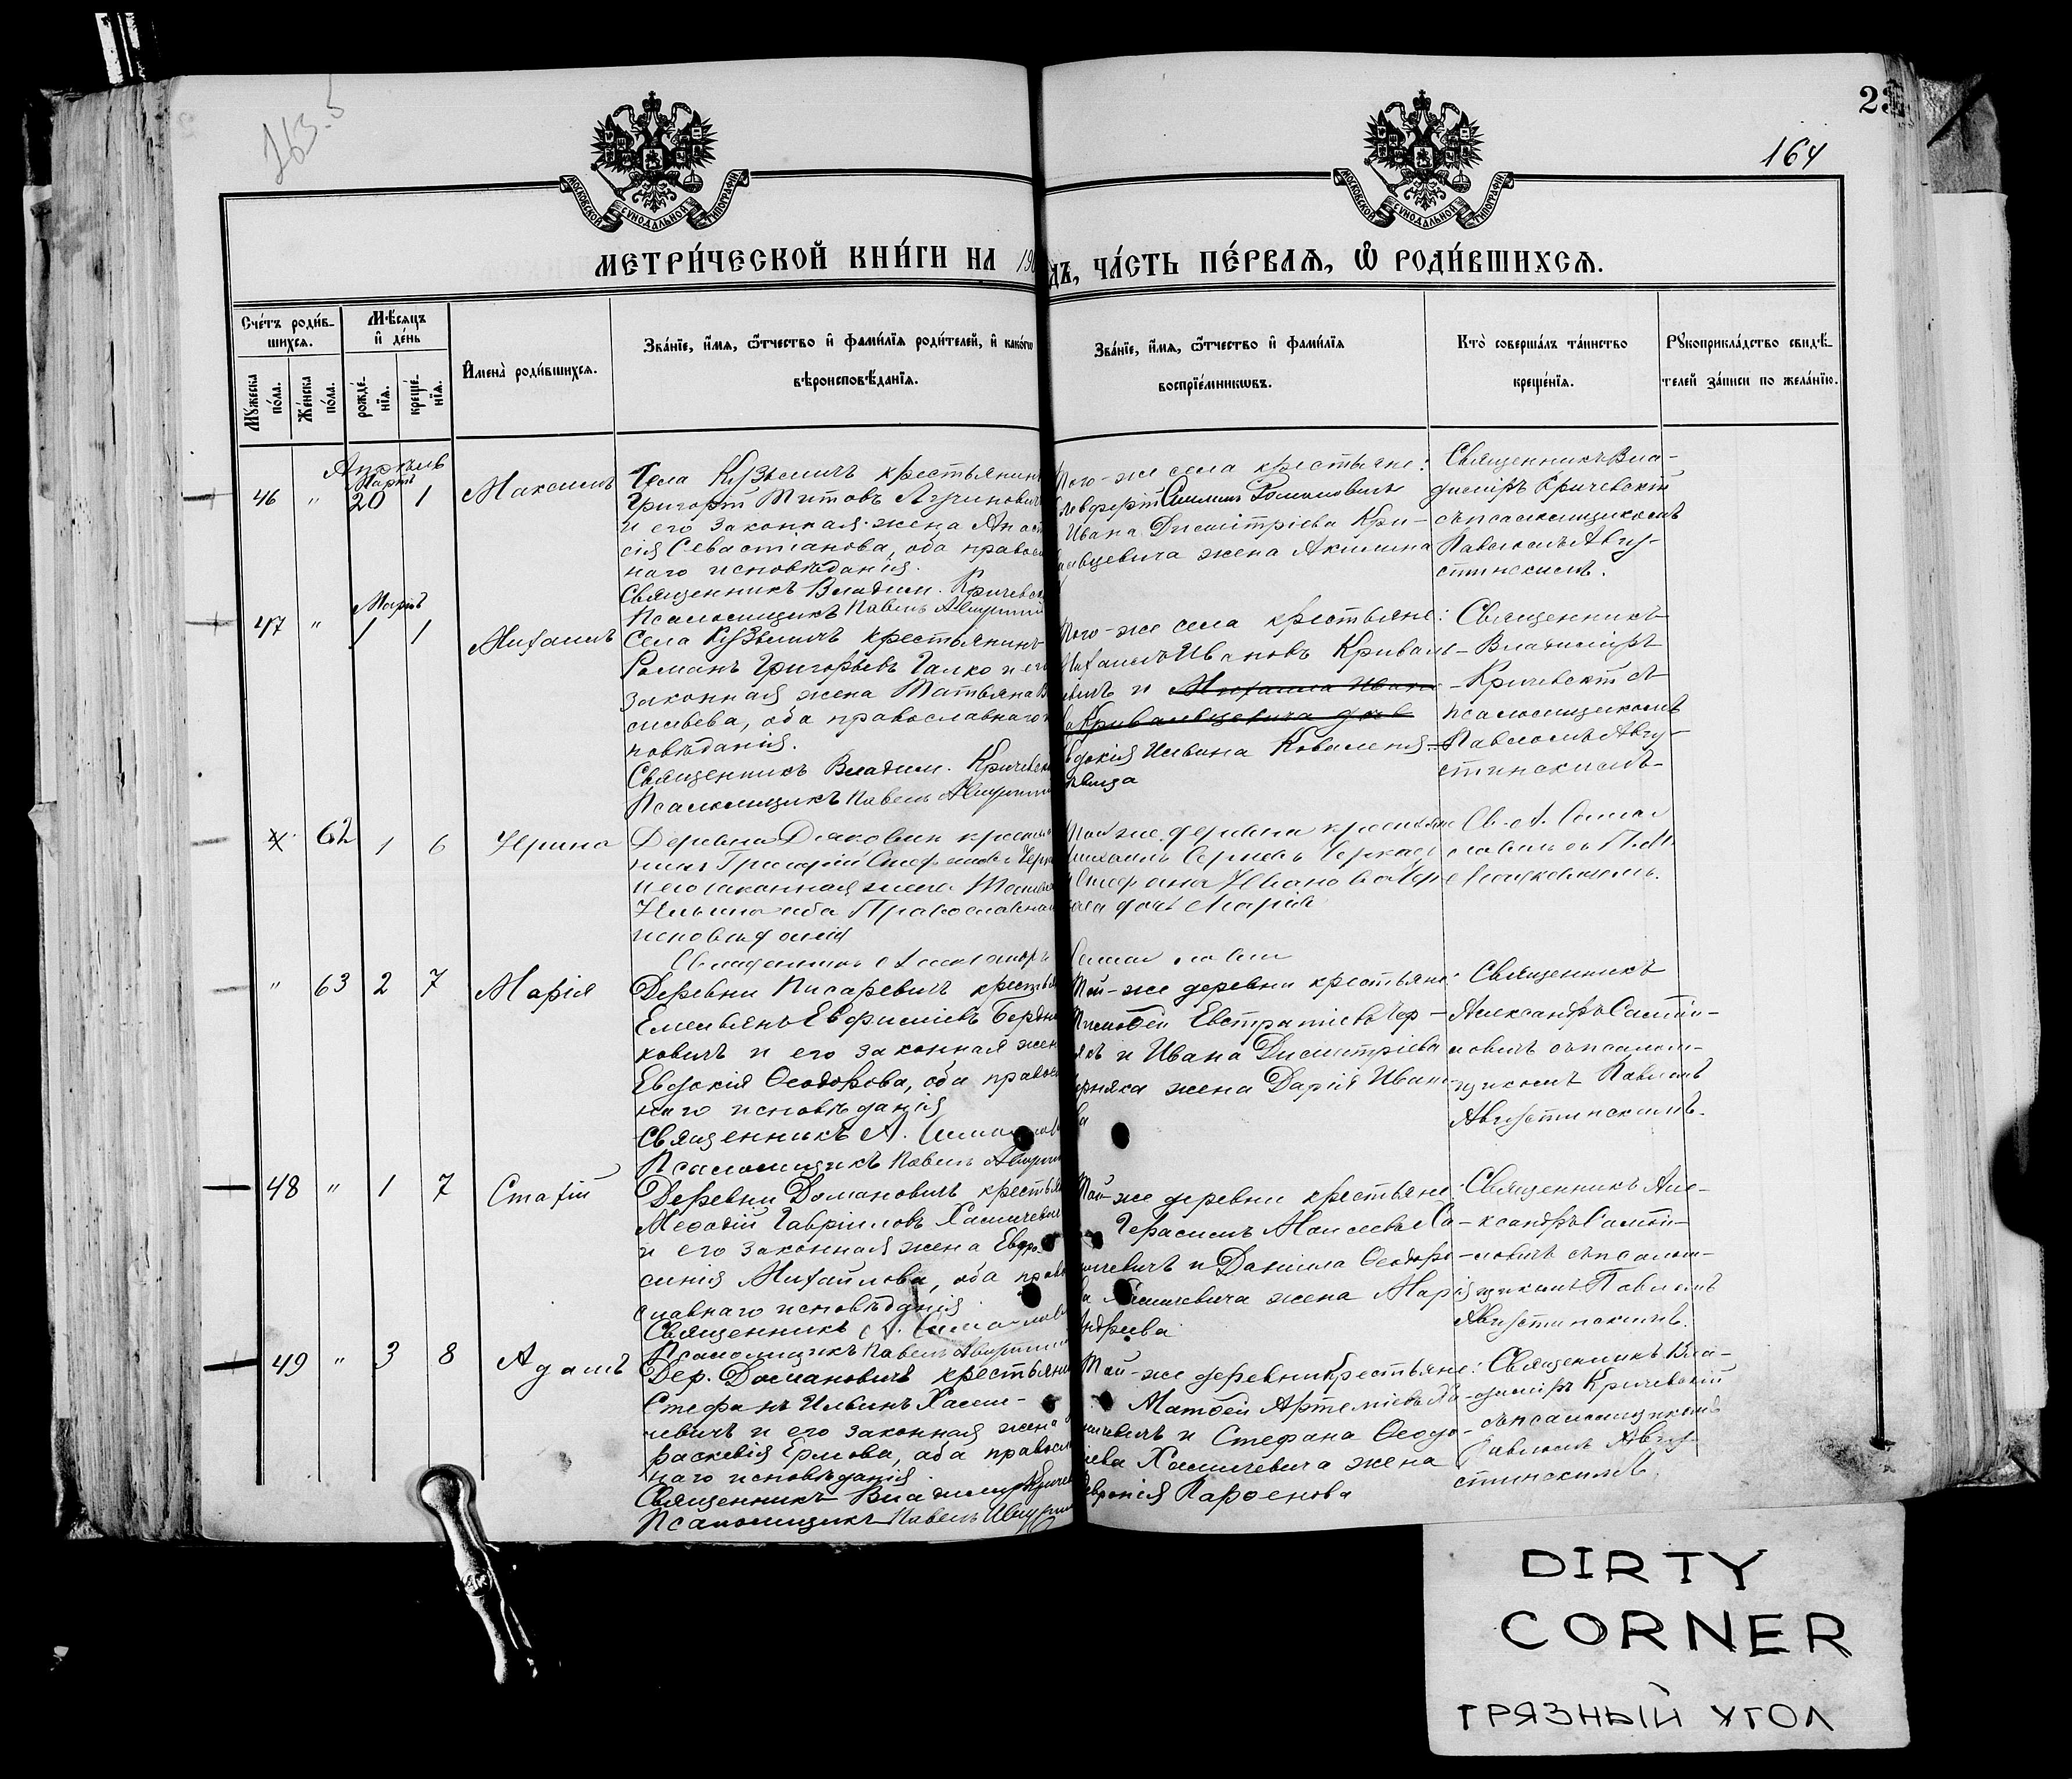 163.5
23
164
МОСКОВСКОЙ СУНОДАЛЬНОЙ ТИПОГРАФІИ
МОСКОВСКОЙ СУНОДАЛЬНОЙ ТИПОГРАФІИ
МЕТРИ́ЧЕСКОЙ КНИ́ГИ НА 190
дъ, ЧА́СТЬ ПЕ́РВАѦ, Ѡ҆ РОДИ́ВШИХСѦ.
Сче́тъ роди́в-
шихсѧ.
Мꙋ́жеска по́ла.
Же́нска по́ла.
Мѣ́сѧцъ и҆ де́нь
рожде́-нїѧ.
креще́-нїѧ.
И҆мена̀ роди́вшихсѧ.
Зва́нїе, и҆́мѧ, ѻ҆́тчество и҆ фами́лїѧ роди́телей, и҆ како́гѡ
вѣроисповѣ́данїѧ.
Зва́нїе, и҆́мѧ, ѻ҆́тчество и҆ фами́лїѧ
воспрїе́мникѡвъ.
Кто̀ соверша́лъ та́инство
креще́нїѧ.
Рꙋкоприкла́дство свидѣ́-
телей за́писи по жела́нїю.
Апрѣль
Мартъ
46 " 20 1 Максимъ
Села Кузьмичъ крестьянинъ
Григорій Титовъ
и его законная жена Анаст
сія Севастіанова, оба правосл
наго исповѣданія.
Священникъ Владим. Кричевск
Псаломщикъ Павелъ Августин
Того-же села крестьяне:
Ивана Димитріева Кри-
вальцевича жена Акилина
Священникъ Вла-
диміръ Кричевскій
съ псаломщикомъ
Павломъ Авгу-
стинскимъ.
Мартъ
47 " 1 1 Михаилъ
Села Кузьмичъ крестьянинъ
Романъ Григорьевъ Галко и его
законная жена Татьяна В
сильева, оба православнаго и
повѣданія.
Священникъ Владим. Кричевск
Псаломщикъ Павелъ Августин
Того-же села крестьяне:
Михаилъ Ивановъ Криваль-
евичъ и Михаила Ивано-
ва Кривальцевича дочь
вдокія Ильина Ковалення-
дѣвица
Священникъ
Владиміръ
Кричевскій съ
псаломщикомъ
Павломъ Авгу-
стинскимъ
62 1 6 Ирина
Деревни Дяковичъ крестья
нинъ Григорій Стефановъ Черк
и его законная жена
Ильина оба Православна
исповѣданія
Священникъ Александръ
Той же деревни крестьяне
Михаилъ
Стефана Иванова
дочь Марія
" 63 2 7 Марія
Деревни Писаревичъ крестья
Емельянъ Евфиміевъ Бердни
ковичъ и его законная жен
Евдокія Ѳеодорова, оба правос
наго исповѣданія
Священникъ А.
Псаломщикъ Павелъ Августин
Той-же деревни крестьяне:
Тимоѳей Евстратіевъ Чер-
някъ и Ивана Димитріева
ерняка жена Дарія Ивано-
ва
Священникъ
Александръ Самой-
ловичъ съ псалом-
щикомъ Павломъ
Августинскимъ.
48 " 1 7 Стахій
Деревни Домановичъ крестья
Меѳодій Гавріиловъ Хасичевич
и его законная жена Евфро-
синія Михайлова, оба право
славнаго исповѣданія
Священникъ А.
Псаломщикъ Павелъ Августин
Той-же деревни крестьяне:
Герасимъ Моисеевъ Ха-
ичевичъ и Даніила Ѳеодоро-
ва жена Марія
Андреева
Священникъ Але-
ксандръ Самой-
ловичъ съ псалом-
щикомъ Павломъ
Августинскимъ.
49 " 3 8 Адамъ
Дер. Домановичъ крестьянин
Стефанъ Ильинъ Хасин-
чевичъ и его законная жена
раскевія Ермова, оба правосл
наго исповѣданія
Священникъ Владиміръ Кричев
Псаломщикъ Павелъ Августин
Той-же деревни крестьяне:
Матѳей Артеміевъ Ха-
ичевичъ и Стефана Ѳеодо-
іева Хасичевича жена
Февронія Парѳенова
Священникъ Вла-
диміръ Кричевскій
съ псаломщикомъ
Павломъ Авгу-
стинскимъ.
DIRTY
CORNER
ГРЯЗНЫЙ УГОЛ